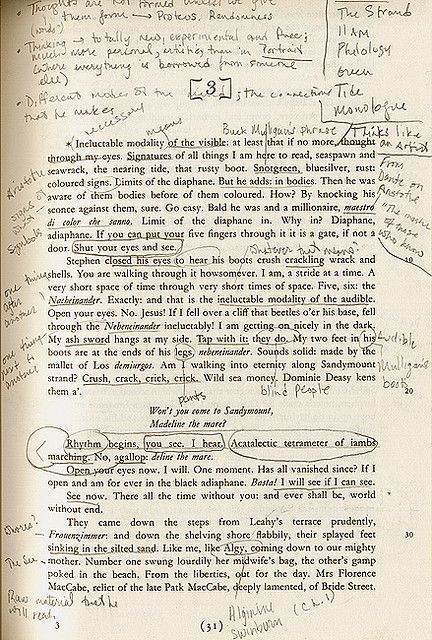 Thoughts are not formed unless we give
them form → Proteus. Randomness
(words)
Thinking → totally new, experimental and free;
much more personal, artistic than in Portrait
(where everything is borrowed from someone
else)
Different modes of the the connections
that he makes
necessary
The Strand
11 AM
Philology
Green
Tide
Monologue
[3]
means
Buck Mulligan's phrase
Thinks like
an Artist
* Ineluctable modality of the visible: at least that if no more, thought
through my eyes. Signatures of all things I am here to read, seaspawn and
seawrack, the nearing tide, that rusty boot. Snotgreen, bluesilver, rust:
coloured signs. Limits of the diaphane. But he adds: in bodies. Then he was
aware of them bodies before of them coloured. How? By knocking his
sconce against them, sure. Go easy. Bald he was and a millionaire, maestro
di color che sanno. Limit of the diaphane in. Why in? Diaphane,
adiaphane. If you can put your five fingers through it it is a gate, if not a
door. Shut your eyes and see.
From
Dante on
Aristotle
"The master
of those
who know
Whatever that means.
Stephen closed his eyes to hear his boots crush crackling wrack and
10
shells. You are walking through it howsomever. I am, a stride at a time. A
very short space of time through very short times of space. Five, six: the
Nacheinander. Exactly: and that is the ineluctable modality of the audible.
Open your eyes. No. Jesus! If I fell over a cliff that beetles o'er his base, fell
through the Nebeneinander ineluctably! I am getting on nicely in the dark.
My ash sword hangs at my side. Tap with it: they do. My two feet in his
boots are at the ends of his legs, nebeneinander. Sounds solid: made by the
mallet of Los demiurgos. Am I walking into eternity along Sandymount
strand? Crush, crack, crick, crick. Wild sea money. Dominie Deasy kens
them a'.
20
one thing
after
another
one thing
next to
another
audible
Mulligan's
boots
pants
blind people
Won't you come to Sandymount,
Madeline the mare?
Rhythm begins, you see. I hear. Acatalectic tetrameter of iambs
marching. No, agallop: deline the mare.
Open your eyes now. I will. One moment. Has all vanished since? If I
open and am for ever in the black adiaphane. Basta! I will see if I can see.
See now. There all the time without you: and ever shall be, world
without end.
They came down the steps from Leahy's terrace prudently,
Frauenzimmer: and down the shelving shore flabbily, their splayed feet
30
sinking in the silted sand. Like me, like Algy, coming down to our mighty
mother. Number one swung lourdily her midwife's bag, the other's gamp
poked in the beach. From the liberties, out for the day. Mrs Florence
MacCabe, relict of the late Patk MacCabe, deeply lamented, of Bride Street.
whores?
The Sea
Raw material that he
will read
Algernon
Swinburn
(Ch. 1)
3
(31)